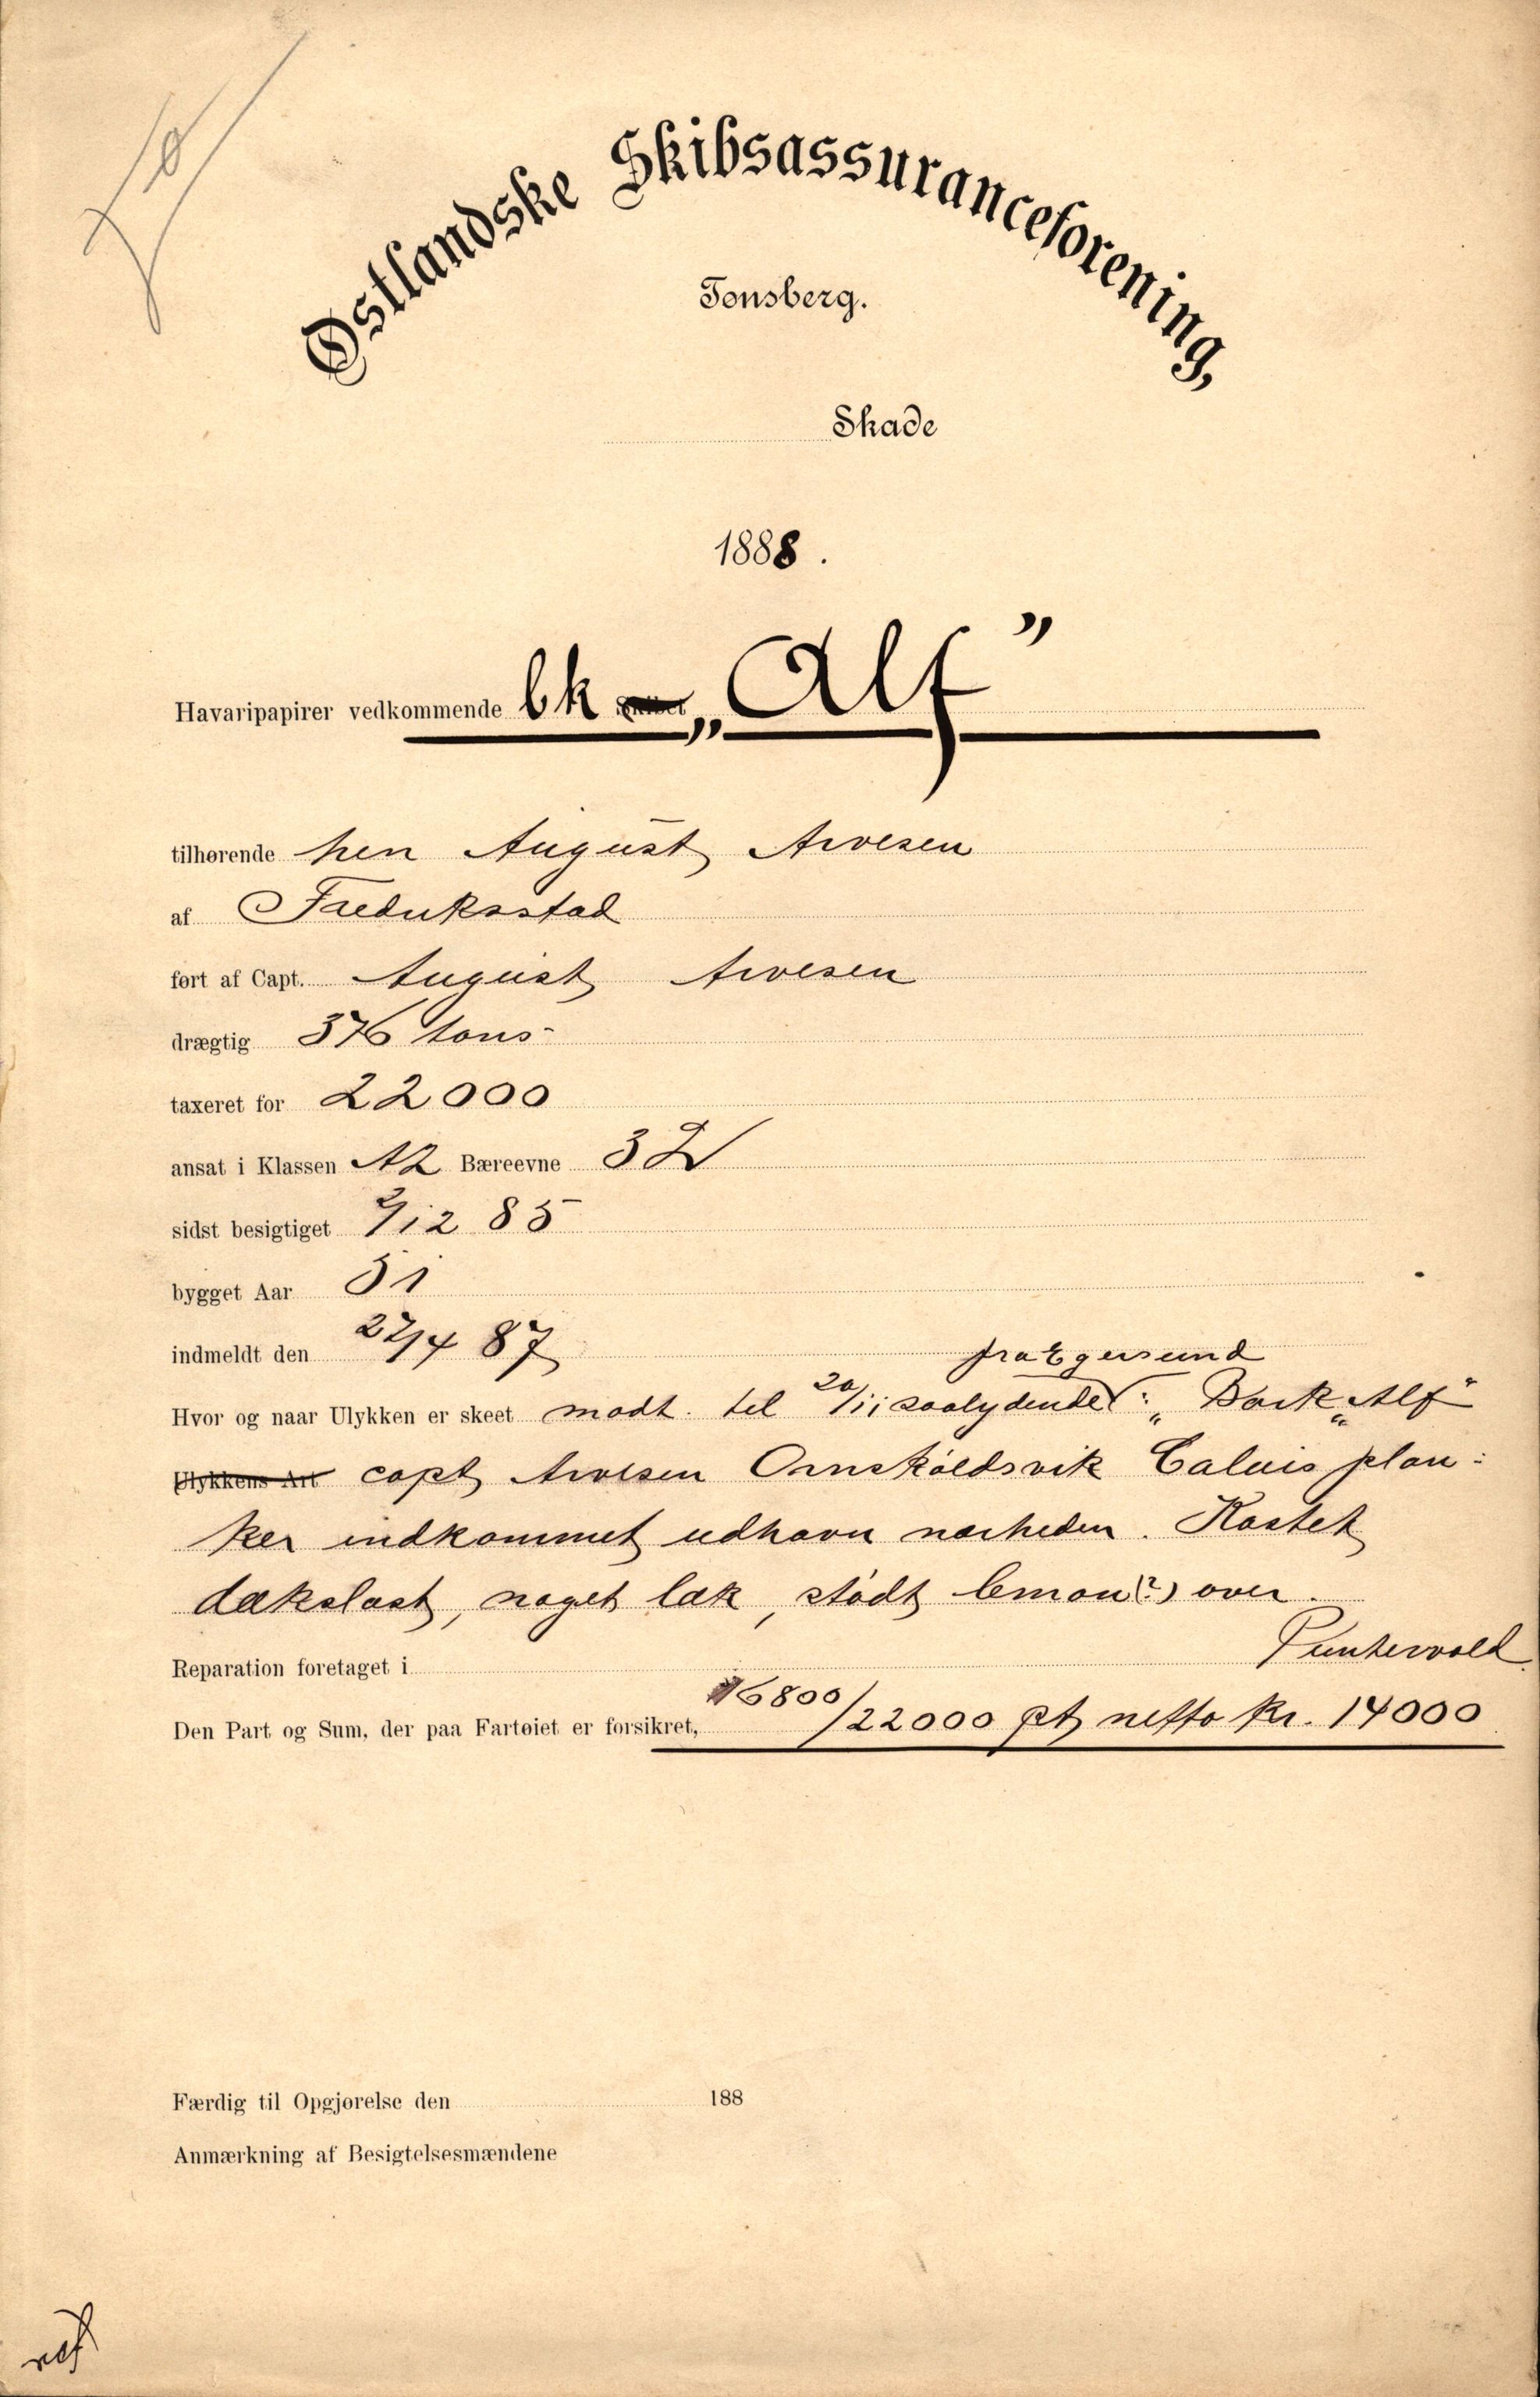 Østlandske Skibsassuranceforening,
Tønsberg.
Skade
1888.
Havaripapirer vedkommende bk „Alf”
tilhørende herr August Arvesen
af Fredriksstad
ført af Capt. August Arvesen
drægtig 376 tons
taxeret for 22000
ansat i Klassen A2 Bæreevne
sidst besigtiget 2/12 85
bygget Aar 51
indmeldt den 22/4 87
fra Egersund
Hvor og naar Ulykken er skeet modt. tel 20/11 saalydende: „Bark „Alf“
Ulykkens Art capt Arvesen Ornskøldsvik Calais plan:
ker indkommet udhavn nærheden. Kastet
dækslast, noget læk, stødt leman(?) over.
Puntervold
Reparation foretaget i
Den Part og Sum, der paa Fartøiet er forsikret, 16800/22000 pt netto kr. 14000
Færdig til Opgjørelse den 188
Anmærkning af Besigtelsesmændene